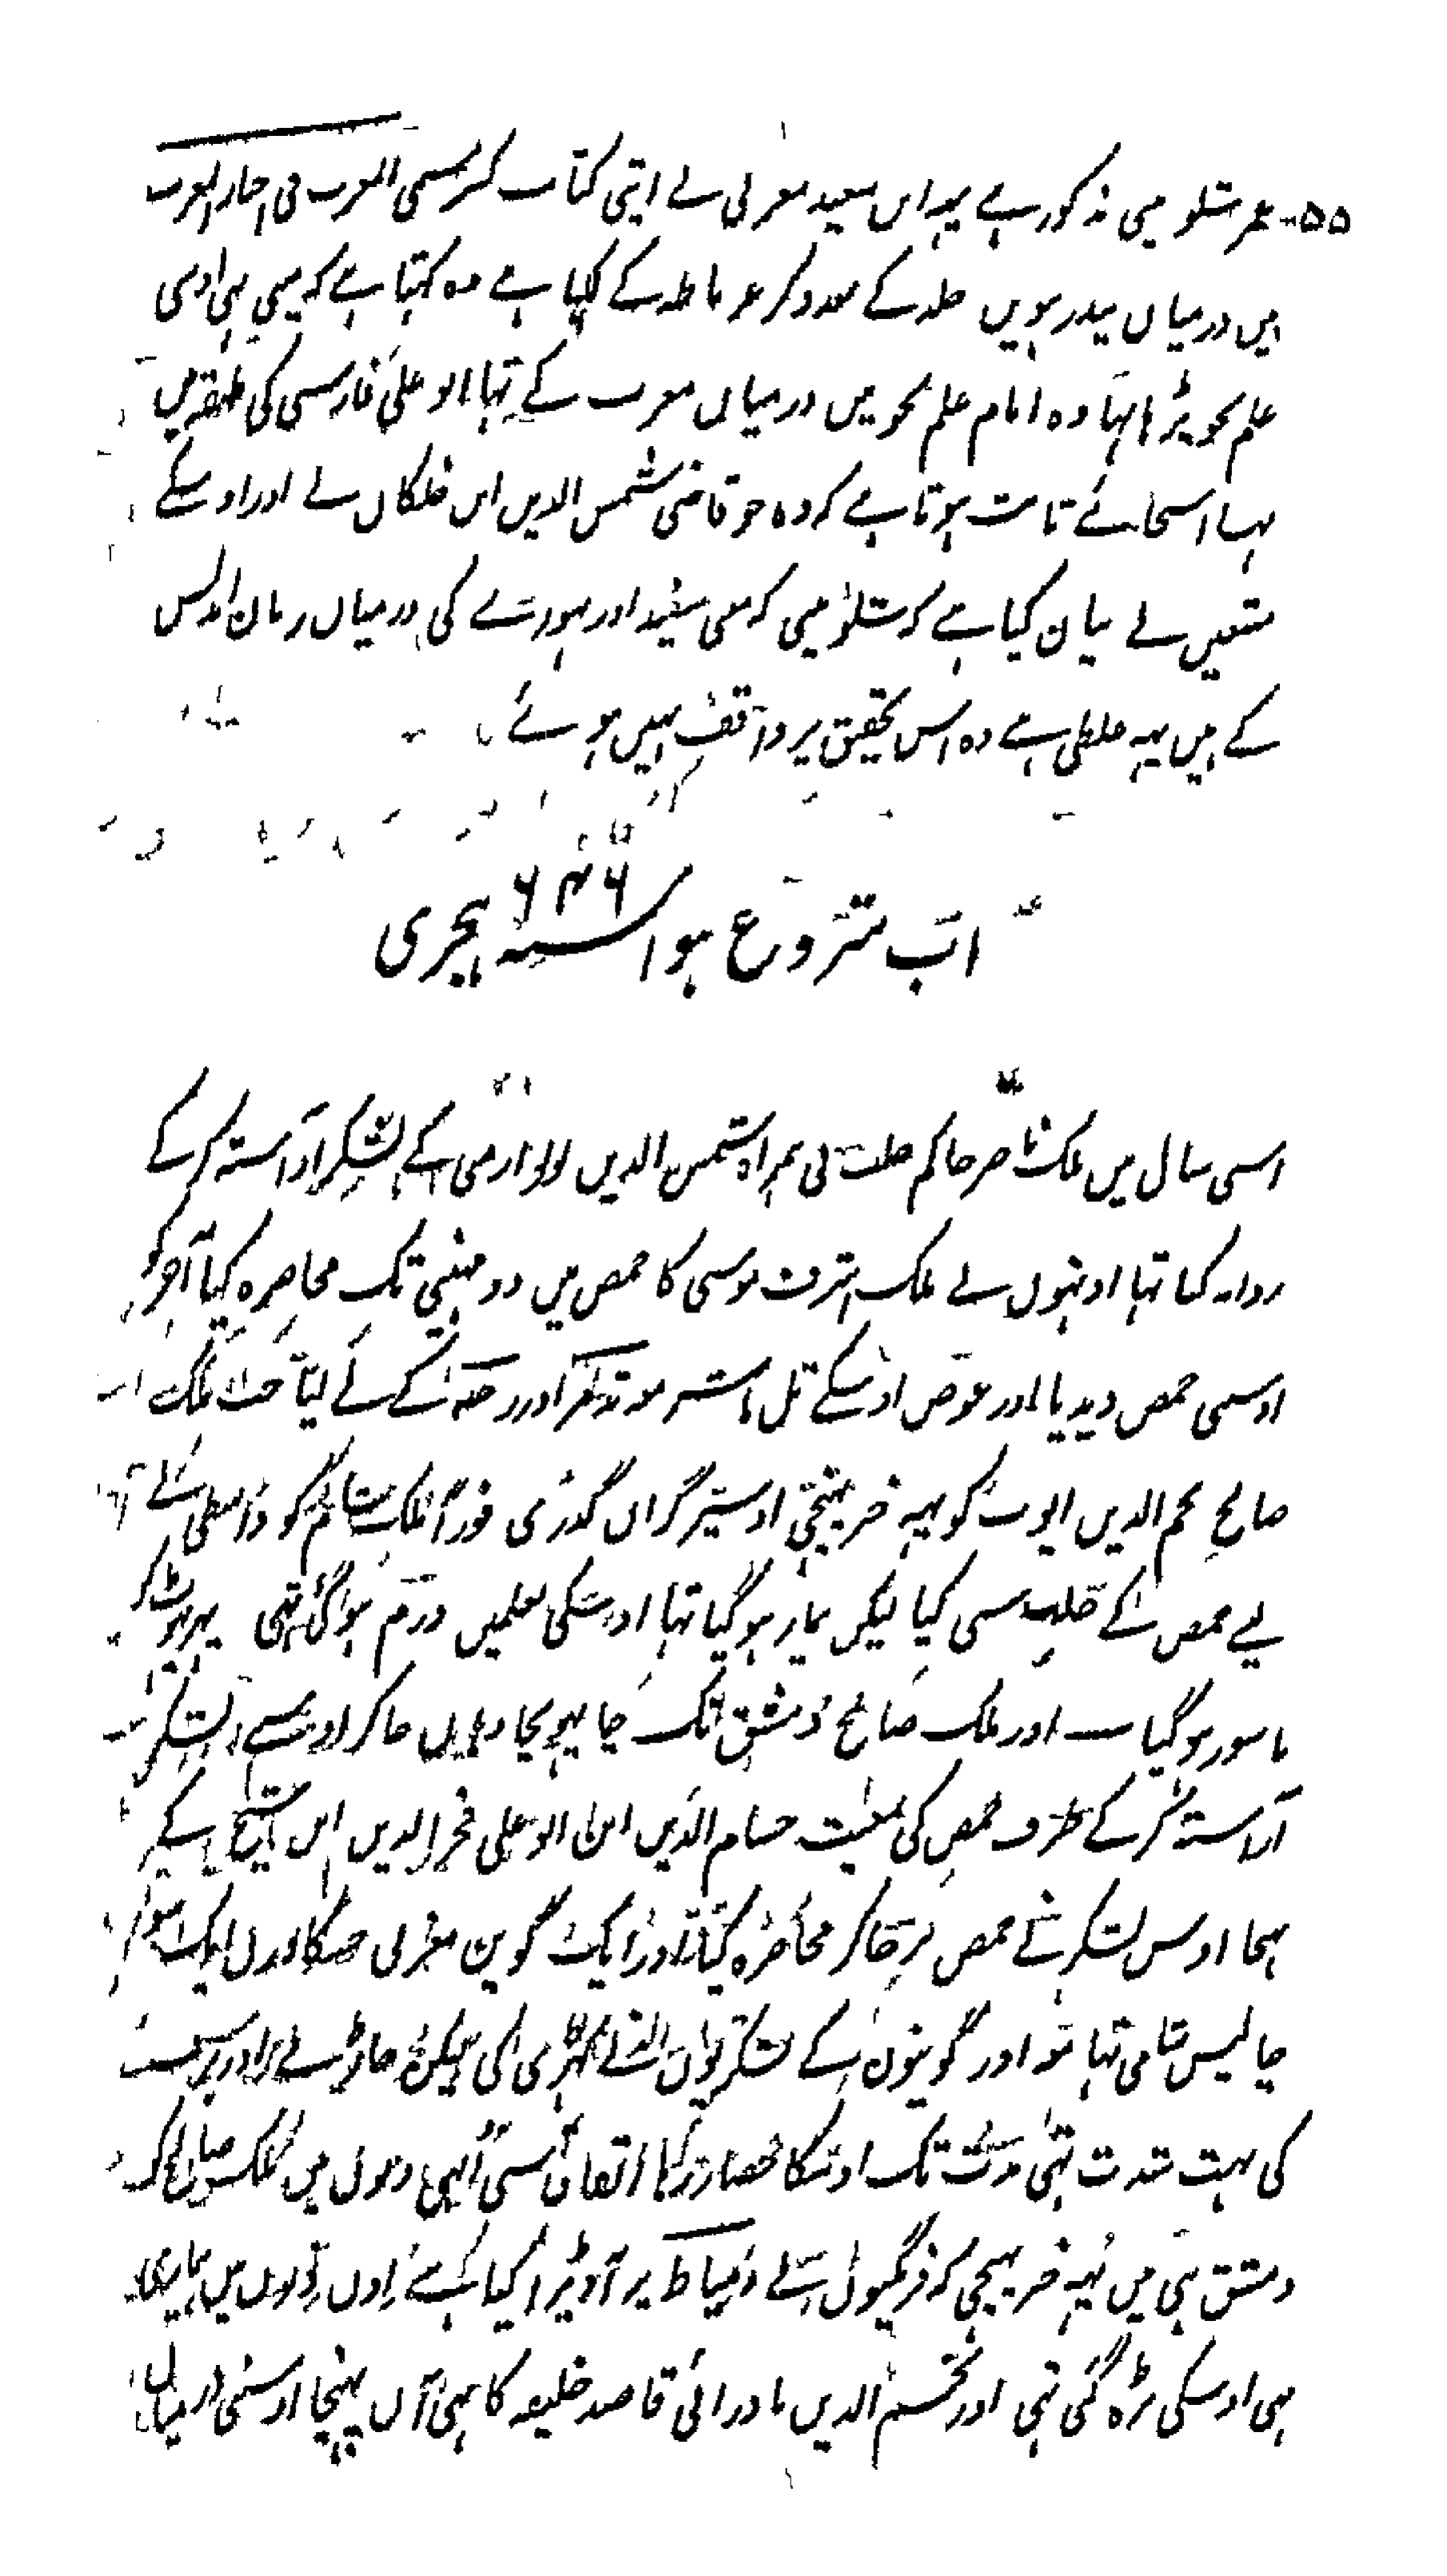 عمر شلوبینی مذکور ہے یہہ ابن سعید مغربی نے اپنی کتاب کہ مسمی المغرب فی اخبار المغرب
میں درمیان پندرہویں جلد کے بعد ذکر غرناطہ کے لکہا ہے وہ کہتا ہے کہ مین بہی اوسی
علم نحو پڑہا تہا وہ امام علم نحو میں درمیان مغرب کے تہا ابو علی فارسی کی طبقہ میں
تہا اسجائے ثابت ہوتا ہے کہ وہ جو قاضی شمس الدین ابن خلکان نے اور اوسکے
متبعین نے بیان کیا ہے کہ شلوبینی کہ معنی سفید اور بہورے کی درمیان زبان اندلس
کے ہیں یہہ غلطی ہے وہ اس تحقیق پر واقف نہیں ہوئے
اب شروع ہوا سنہ ۶۴۶ ہجری
اسی سال میں ملک ناصر حاکم حلب نی ہمراہ شمس الدین لولو ارمنی کے لشکر آراستہ کر کے
روانہ کیا تہا اونہوں نے ملک اشرف موسی کا حمص میں دو مہینی تک محاصرہ کیا آخر کو
اوسی حمص دیدیا اور عوض اوسکے تل باشر معہ تدمر اور رحبہ کے لے لیا جب ملک
صالح نجم الدین ایوب کو یہہ خبر پہنچی اوسپر گراں گذری فوراً ملک شام کو واسطی
لیے حمص کے حلب سی کیا لیکن بیمار ہو گیا تہا اوسکی میں ورم ہو گئی تہی پہر پہوٹ کر
ناسور ہو گیا اور ملک صالح دمشق تک جا پہونچا وہاں جا کر اوسنے لشکر
آراستہ کر کے طرف حمص کی بمعیت حسام الدین ابن ابو علی فخر الدین ابن شیخ کے
بہیجا اوس لشکر نے حمص پر جا کر محاصرہ کیا اور ایک گوپن مغربی جسکا وزن ایک سو
چالیس شامی تہا اور گوپنوں کے کہڑی کی لیکن جاڑے اور
کی بہت شدت تہی مدت تک اوسکا حصار رکہا اتفاق سی انہی دنوں میں ملک صالح کو
دمشق ہی میں یہہ خبر پہنچی کہ فرنگیوں نے دمیاط پر آ ڈیرا کیا ہے اون دنوں میں بیماری
ہی اوسکی بڑہ گئی تہی اور نجم الدین بادرائی قاصد خلیفہ کا بہی آن پہنچا اوسنی درمیان